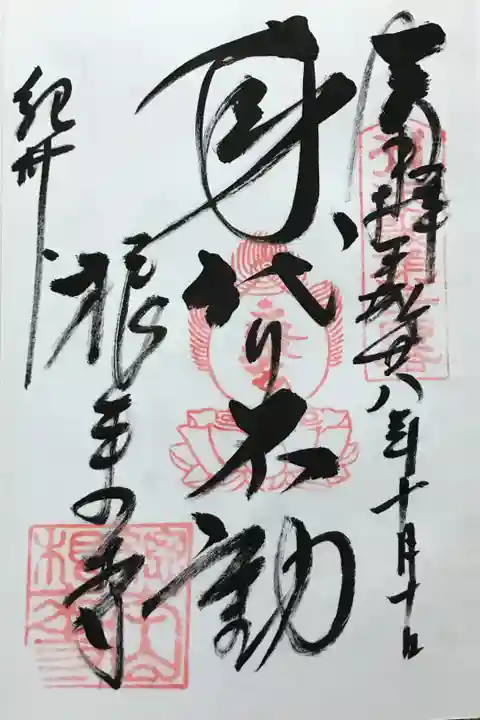 奉拝 平成廿八年十月十日
身代り不動
紀州
根来の寺